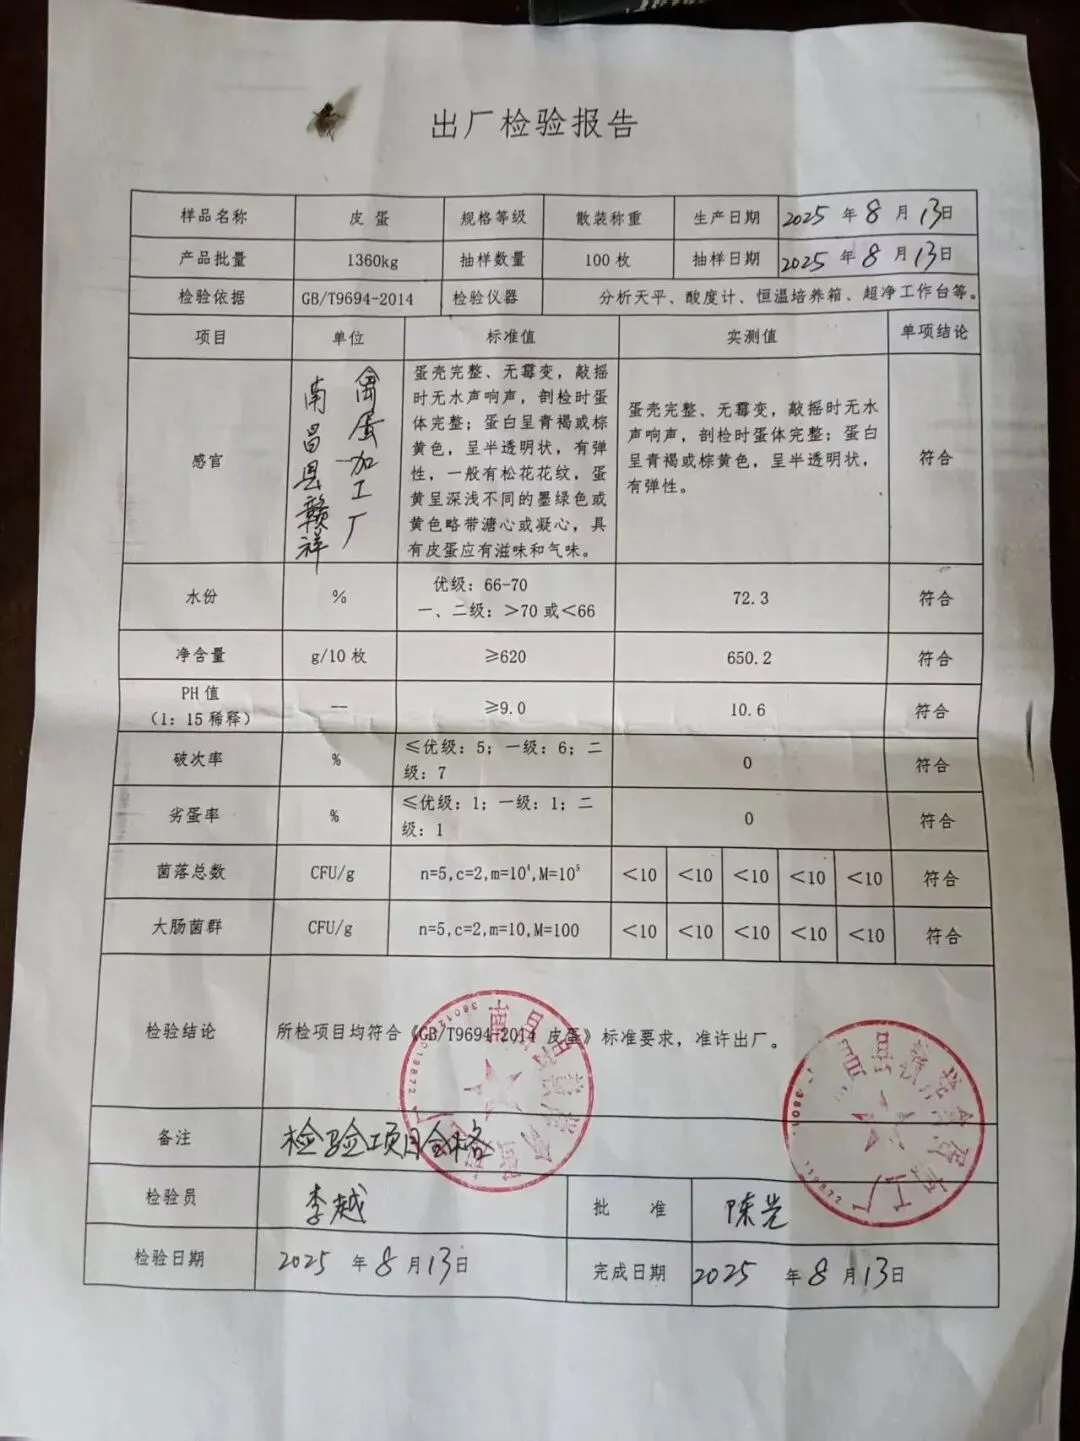 出厂检验报告
样品名称 皮 蛋 规格等级 散装称重 生产日期 2025 年 8 月 13日
产品批量 1360kg 抽样数量 100 枚 抽样日期 2025 年 8 月 13日
检验依据 GB/T9694-2014 检验仪器 分析天平、酸度计、恒温培养箱、超净工作台等。
项目 单位 标准值 实测值 单项结论
感官
南昌县赣祥
禽蛋加工厂
蛋壳完整、无霉变，敲摇
时无水声响声，剖检时蛋
体完整；蛋白呈青褐或棕
黄色，呈半透明状，有弹
性，一般有松花花纹，蛋
黄呈深浅不同的墨绿色或
黄色略带溏心或凝心，具
有皮蛋应有滋味和气味。
蛋壳完整、无霉变，敲摇时无水
声响声，剖检时蛋体完整；蛋白
呈青褐或棕黄色，呈半透明状，
有弹性。
符合
水份 %
优级：66-70
一、二级：>70 或<66
72.3 符合
净含量 g/10 枚 ≥620 650.2 符合
PH 值
（1：15 稀释）
-- ≥9.0 10.6 符合
破次率 %
≤优级：5；一级：6；二
级：7
0 符合
劣蛋率 %
≤优级：1；一级：1；二
级：1
0 符合
菌落总数 CFU/g n=5,c=2,m=10⁴,M=10⁵ <10 <10 <10 <10 <10 符合
大肠菌群 CFU/g n=5,c=2,m=10,M=100 <10 <10 <10 <10 <10 符合
检验结论 所检项目均符合《GB/T9694-2014 皮蛋》标准要求，准许出厂。
备注 检验项目合格
检验员 李越 批 准 陈光
检验日期 2025 年 8 月 13日 完成日期 2025 年 8 月 13日